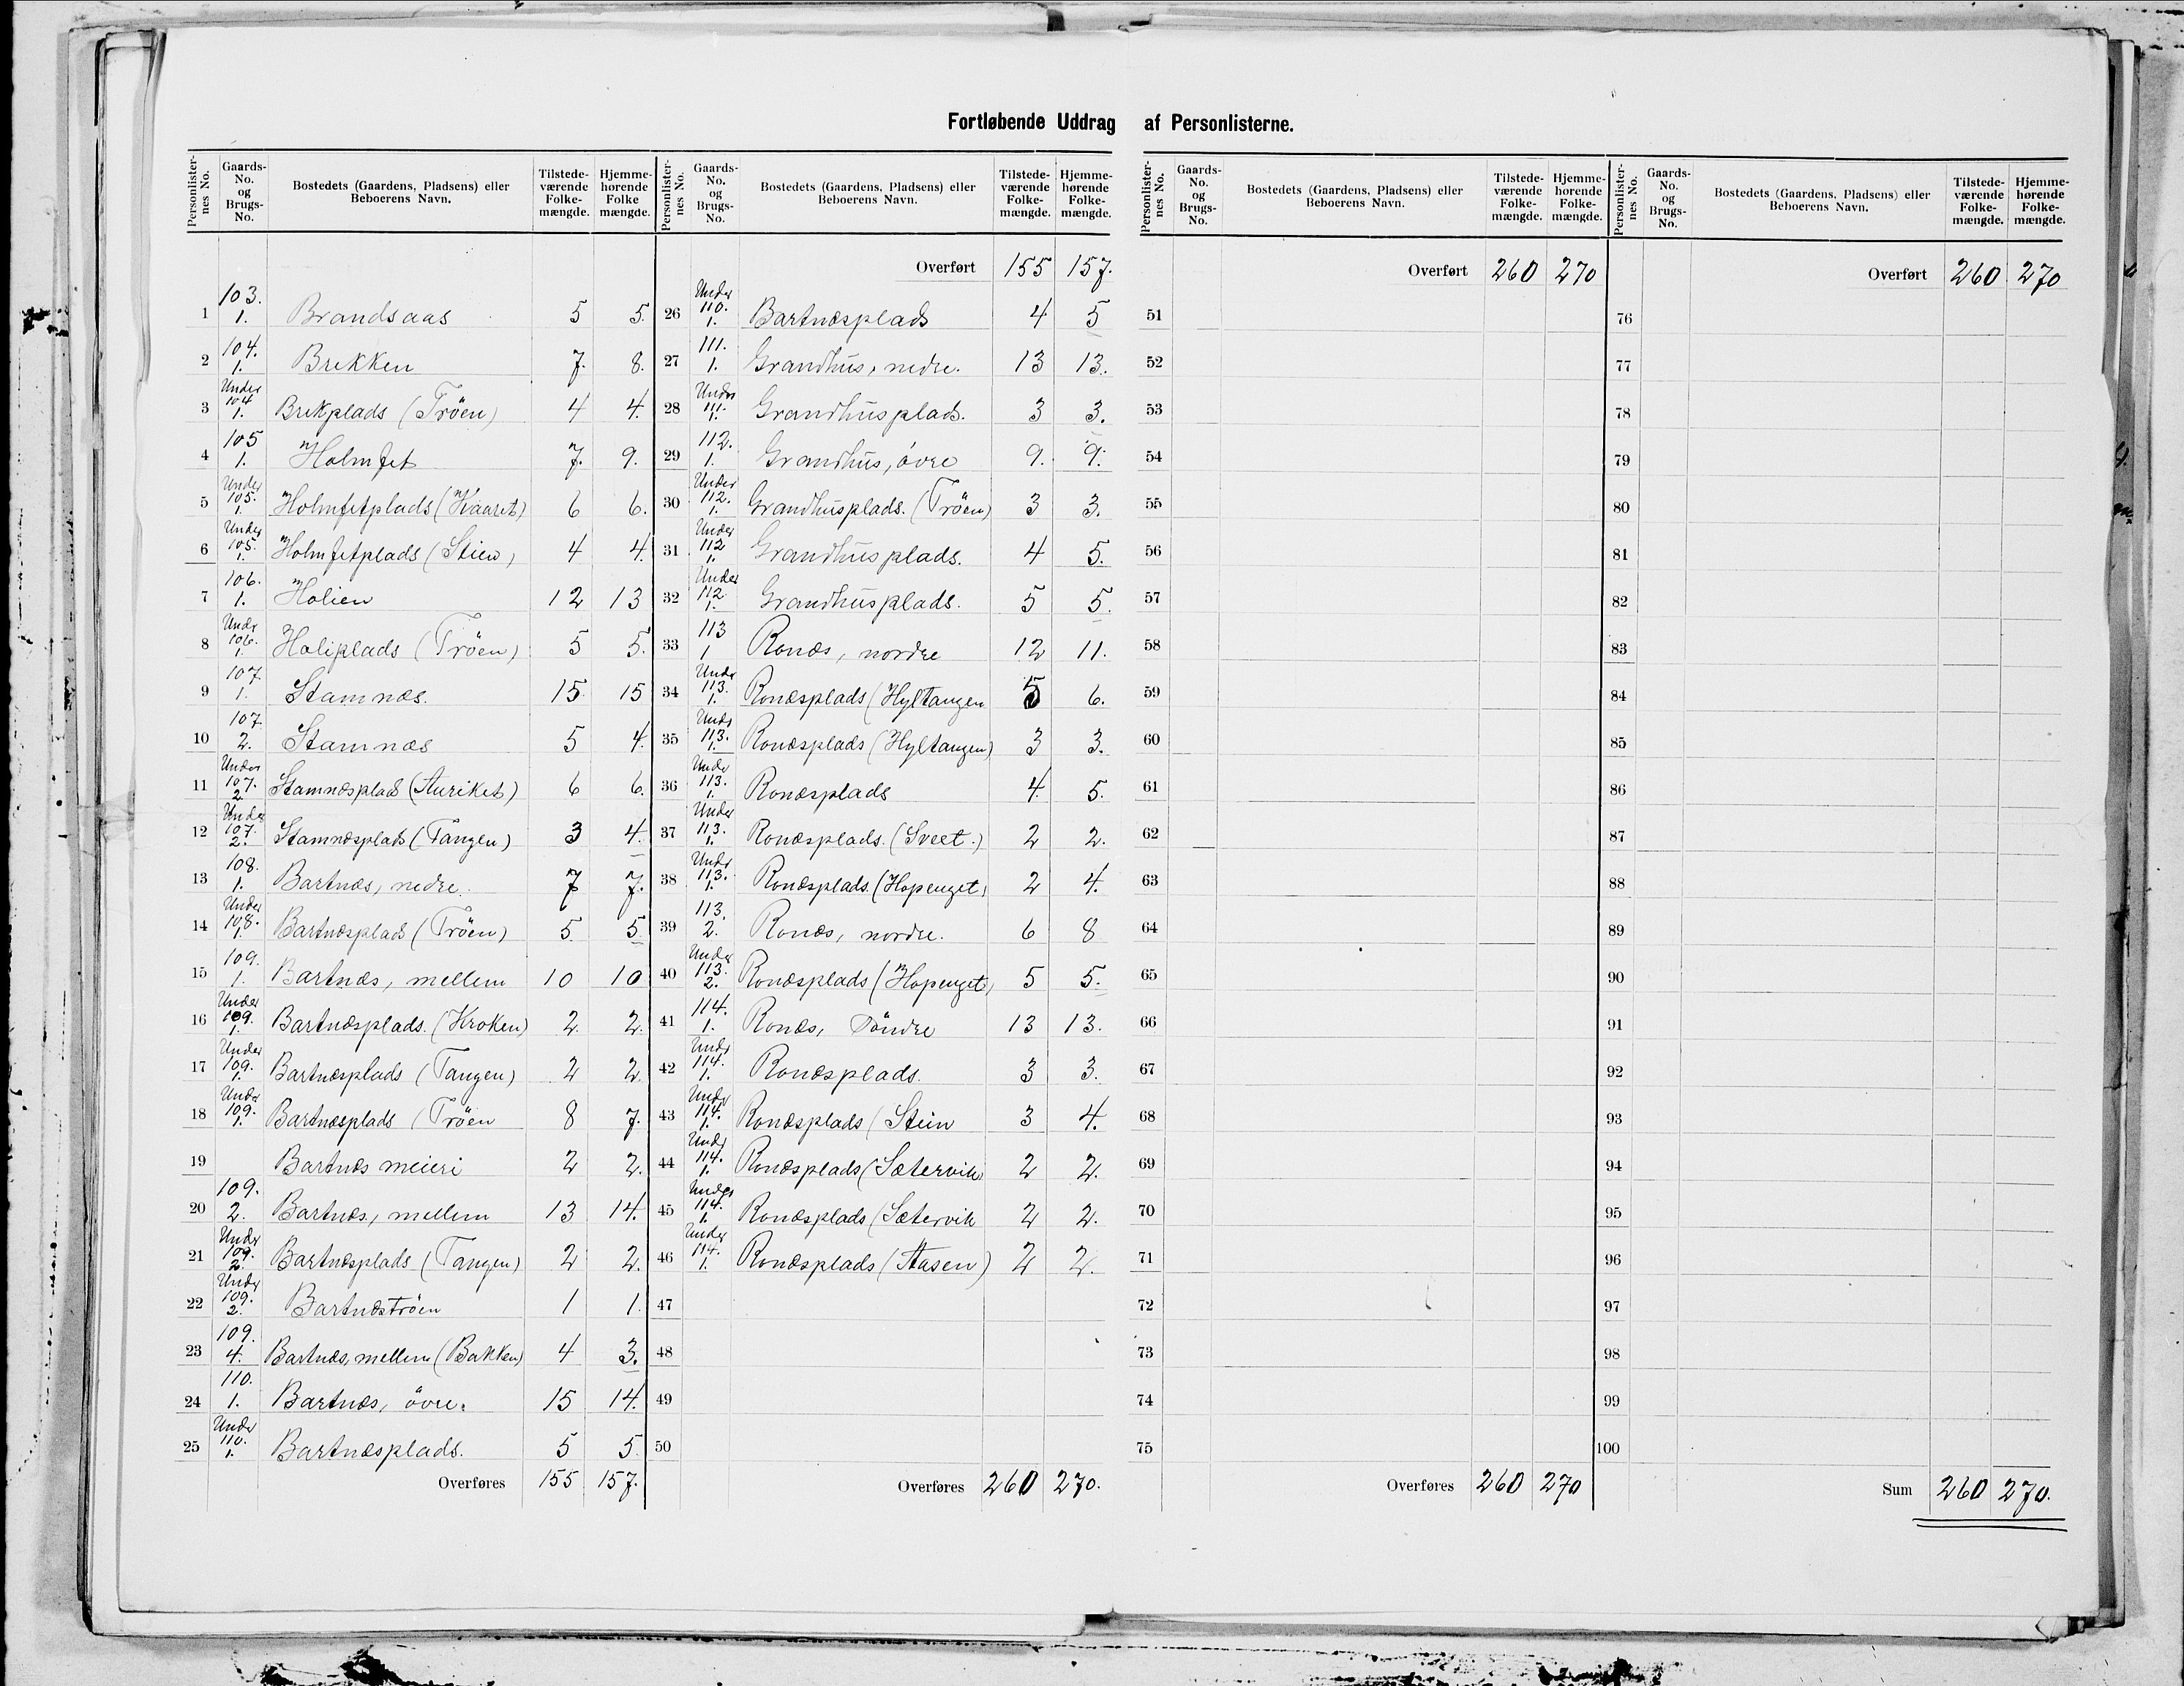 Fortløbende Uddrag af Personlisterne.
Personlisternes No. Gaards-No. og Brugs-No. Bostedets (Gaardens, Pladsens) eller Beboerens Navn. Tilstedeværende Folkemængde. Hjemmehørende Folke mængde.
1 103. 1. Brandsaas 5 5.
2 104. 1. Brekken 7. 8.
3 Under 104 1. Brekplads (Tröen) 4 4.
4 105 1. Holmset 7. 9.
5 Under 105. 1. Holmsetplads (Haaret) 6 6.
6 Under 105. 1. Holmsetplads (Stien) 4 4.
7 106. 1. Holien 12 13
8 Undr 106. 1. Holiplads (Tröen) 5 5.
9 107. 1. Stamnæs. 15 15
10 107. 2. Stamnæs 5 4.
11 Under 107. 2 Stamnæsplads (Auriket) 6 6.
12 Under 107. 2. Stamnæsplads (Tangen) 3 4.
13 108. 1. Bartnæs, nedre. 7 7.
14 Under 108. 1. Bartnæsplads (Tröen) 5 5
15 109. 1. Bartnæs, mellem 10 10
16 Under 109. 1. Bartnæsplads. (Kroken) 2 2.
17 Under 109. 1. Bartnæsplads (Tangen) 2 2.
18 Under 109. 1. Bartnæsplads (Tröen 8 7.
19 Bartnæs meieri 2 2.
20 109. 2. Bartnæs, mellem 13 14.
21 Undr 109. 2. Bartnæsplads (Tangen) 2 2.
22 Undr 109. 2. Bartnæströen 1 1.
23 109. 4. Bartnæs, mellem (Bakken) 4 3.
24 110. 1. Bartnæs, övre. 15 14.
25 Under 110. 1. Bartnæsplads. 5 5.
Overføres 155 157.
Personlisternes No. Gaards-No. og Brugs-No. Bostedets (Gaardens, Pladsens) eller Beboerens Navn. Tilstedeværende Folkemængde. Hjemmehørende Folkemængde.
Overført 155 157.
26 Under 110. 1. Bartnæsplads 4 5
27 111. 1. Grandhus, nedre. 13 13.
28 Under 111. 1. Grandhusplads. 3 3.
29 112. 1. Grandhus, övre 9. 9.
30 Under 112. 1. Grandhusplads. (Tröen) 3 3.
31 Under 112 1. Grandhusplads. 4 5.
32 Under 112. 1. Grandhusplads. 5 5.
33 113 1 Ronæs, nordre 12 11.
34 Undr 113. 1. Ronæsplads (Hyltangen 5 6.
35 Undr 113. 1. Ronæsplads (Hyltangen) 3 3.
36 Unde 113. 1. Ronæsplads 4. 5.
37 Under 113. 1. Ronæsplads. (Sveet.) 2 2.
38 Undr 113. 1. Ronæsplads. (Hopenget) 2 4.
39 113. 2. Ronæs, nordre. 6 8
40 Under 113. 2. Ronæsplads (Hopenget) 5 5.
41 114. 1. Ronæs, Söndre 13 13.
42 Undr 114. 1. Ronæsplads. 3 3.
43 Undr 114. 1. Ronæsplads (Stein 3 4.
44 Undr 114. 1. Ronæsplads (Sætervik) 2 2.
45 Under 114. 1. Ronæsplads (Sætervik 2 2.
46 Under 114. 1. Ronæsplads (Aasen) 2 2.
47
48
49
50
Overføres 260 270.
Personlisternes No. Gaards-No. og Brugs-No. Bostedets (Gaardens, Pladsens) eller Beboerens Navn. Tilstedeværende Folkemængde. Hjemmehørende Folkemængde.
Overført 260 270
51
52
53
54
55
56
57
58
59
60
61
62
63
64
65
66
67
68
69
70
71
72
73
74
75
Overføres 260 270
Personlisternes No. Gaards-No. og Brugs-No. Bostedets (Gaardens, Pladsens) eller Beboerens Navn. Tilstedeværende Folkemængde. Hjemmehørende Folkemængde.
Overført 260 270
76
77
78
79
80
81
82
83
84
85
86
87
88
89
90
91
92
93
94
95
96
97
98
99
100
Sum 260 270.